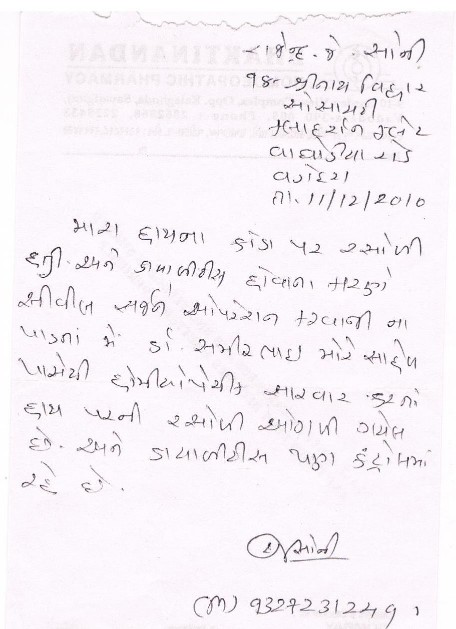 રાજેન્દ્ર. જે. સોની
૧૪ શ્રીનાથ વિહાર
સોસાયટી
વાઘોડીયા રોડ
વડોદરા
તા. 11/12/2010
મારા હાથના કાંડા પર રસોળી
હતી. અને ડાયાબીટીસ હોવાના કારણે
સીવીલ સર્જને ઓપરેશન કરવાની ના
પાડતાં મેં ડૉ. સમીરભાઇ મોરે સાહેબ
પાસેથી હોમીયોપેથીક સારવાર કરતાં
હાથ પરની રસોળી ઓગળી ગયેલ
છે. અને ડાયાબીટીસ પણ કંટ્રોલમાં
રહે છે.
સોની
(M) 9327231249